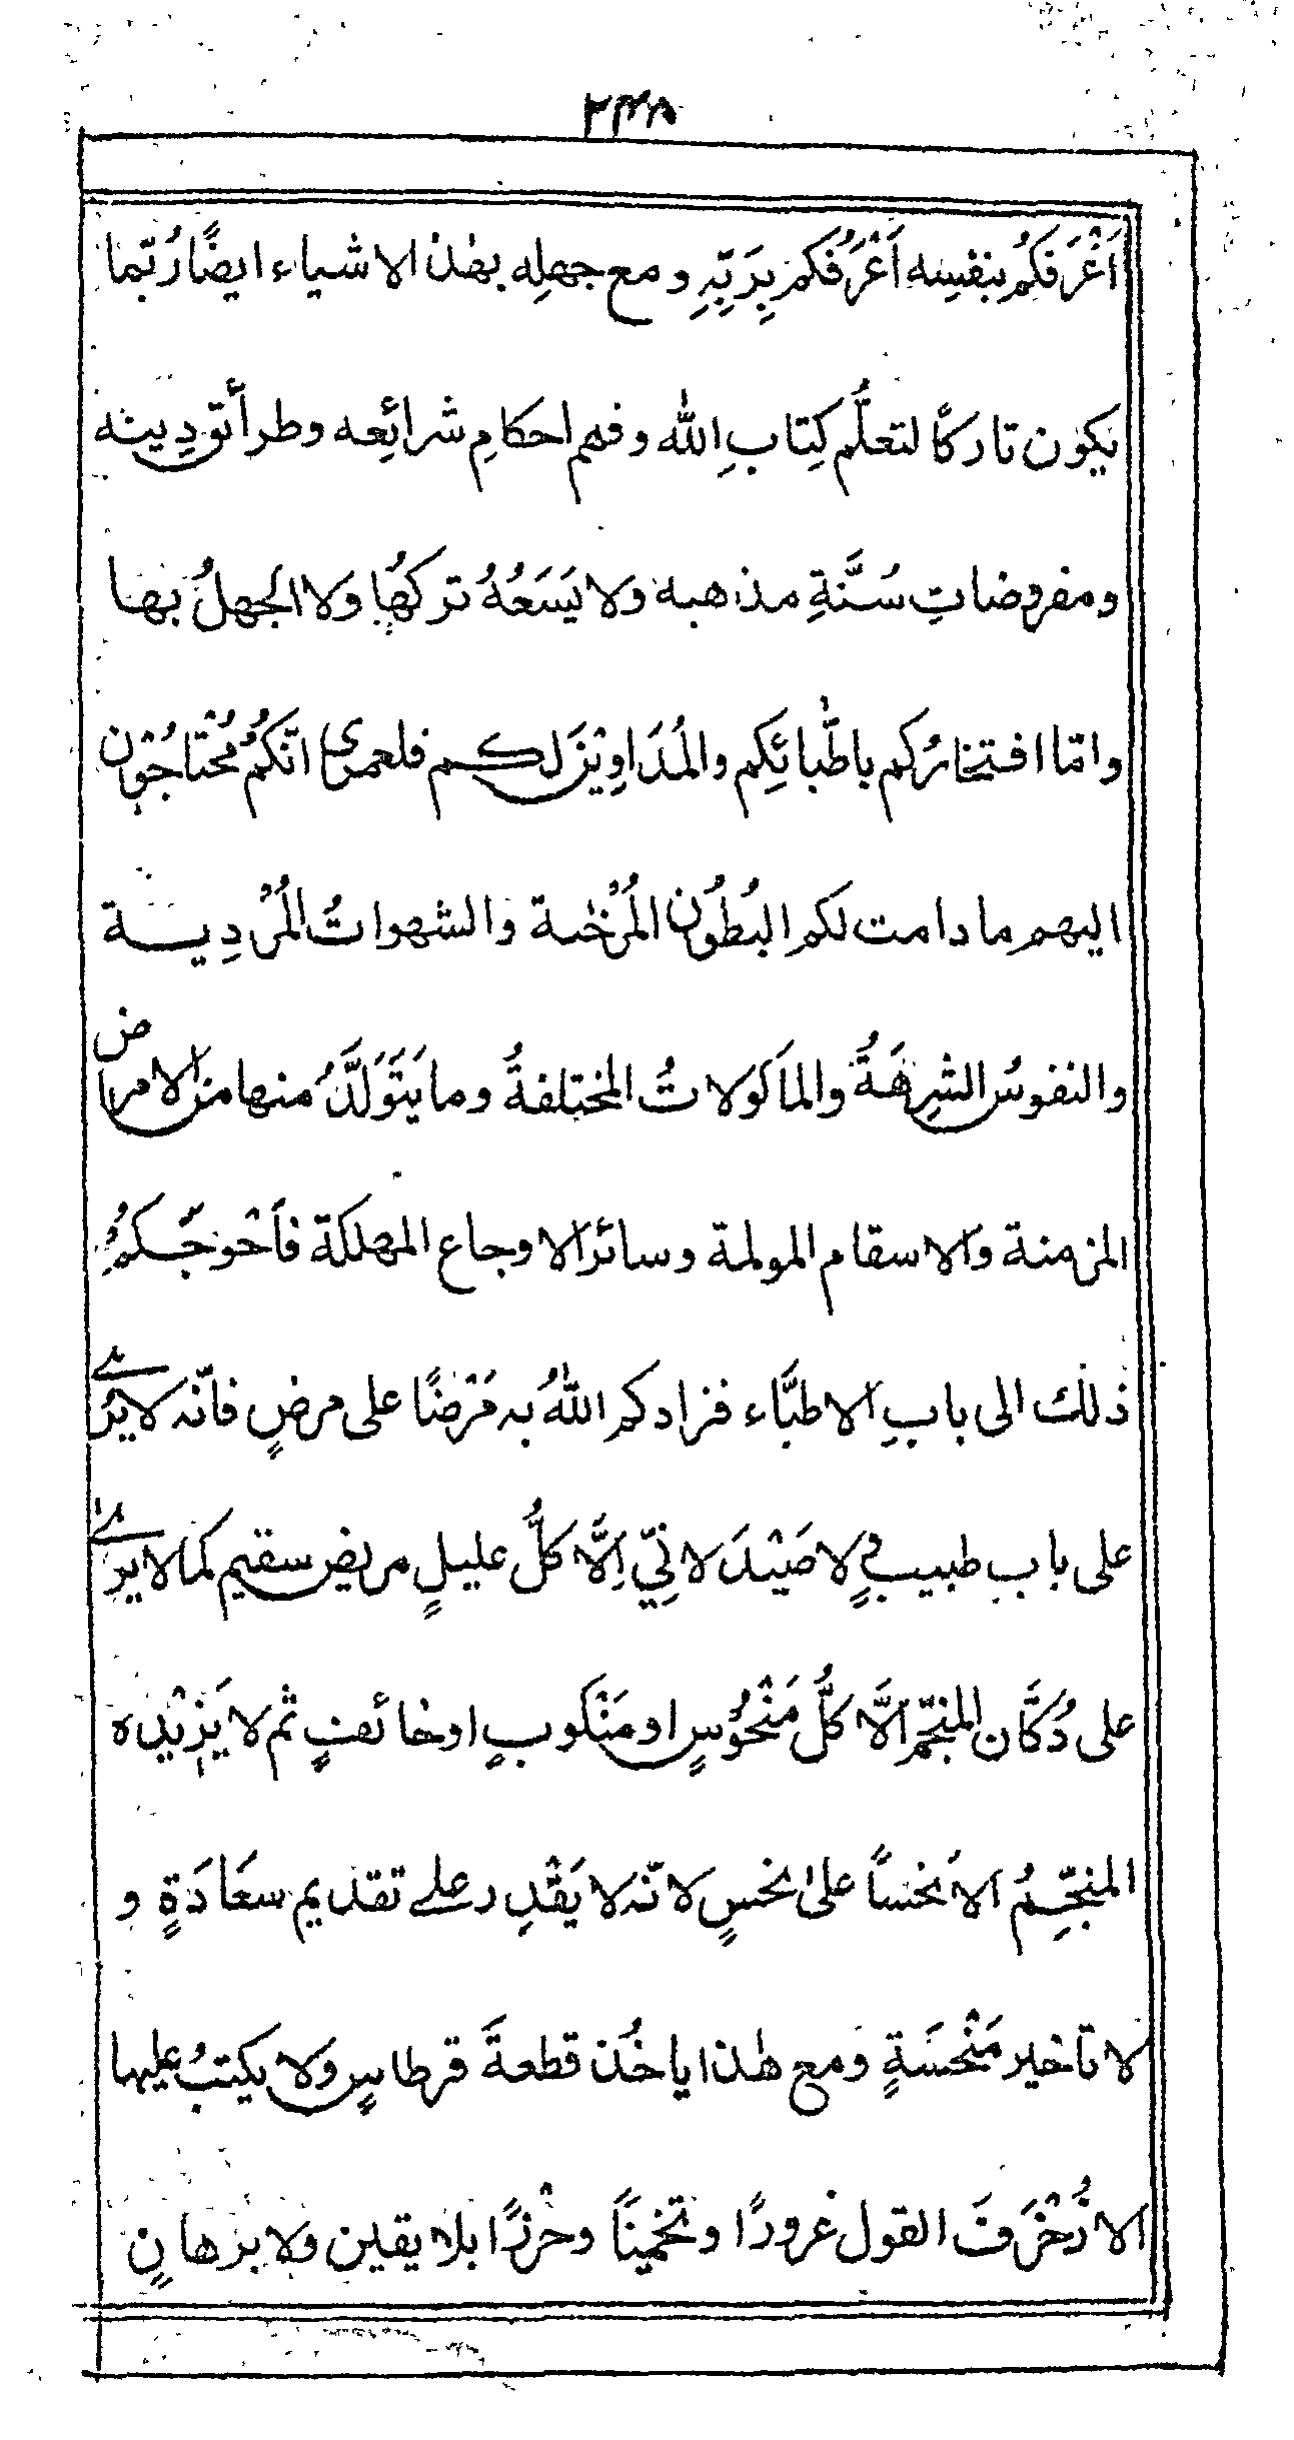 ۲۴۵
اَعْرَفَكُمْ بنفسِه اَعْرَفُكم بِرَبِّهِ و مع جهلِه بهٰذه الاشياء ايضًا رُبّما
يكون تاركًا لتعلُّم كِتابِ اللّٰه و فهم احكامِ شرائِعه وطرائق دِينه
ومفروضاتِ سُنَّةِ مذهبه ولا يَسَعُهُ تركُها ولا الجهلُ بها
وامّا افتخارُكم باطّبائِكم والمُدَاوِيْنَ لكم فلعمرى انّكُمْ مُحْتاجُوْن
اليهم ما دامت لكم البُطُوْن المُرْخٰية والشهواتُ المُرْدِية
والنفوسُ الشرِهَةُ والماَكولاتُ المختلفةُ وما يَتَوَلَّدُ منها من الامراض
المزمنة والاسقام المولمة وسائر الاوجاع المهلكة فاَحْوَجَكمْ
ذلك الى بابِ الاطبَّاء فزادكم اللّٰهُ به مَرْضًا على مرضٍ فانّه لا يُرٰے
على باب طبيبٍ ولا صَيْدَلانِيّ اِلَّا كلُّ عليلٍ مريض سقيم كما لا يرٰے
على دُكَّان المنجّم اِلَّا كلُّ مَنْحُوْسٍ او مَنْكوبٍ او خائفٍ ثم لا يَزِيْده
المنجِّمُ الا نَحْساً علىٰ نحسٍ لانّه لا يَقْدِر علے تقديم سعَادَةٍ و
لا تاخير مَنْحَسَةٍ ومع هٰذا ياخُذ قطعةَ قرطاسٍ ولا يكتبُ عليها
الا زُخْرَفَ القول غرورًا وتخمينًا وحَزْرًا بلا يقين ولا برهانٍ